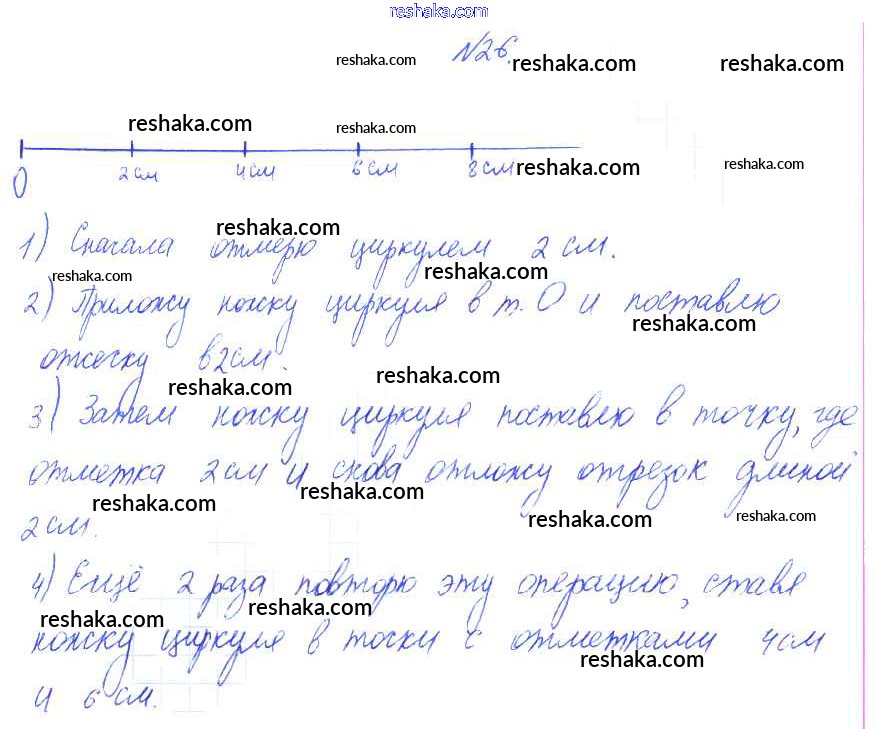 reshaka.com
№26.
reshaka.com reshaka.com reshaka.com
reshaka.com reshaka.com
0 2см 4см 6см 8см
reshaka.com reshaka.com
1) Сначала отмерю циркулем 2 см.
reshaka.com
reshaka.com reshaka.com
2) Приложу ножку циркуля в т. О и поставлю
reshaka.com
отсечку в 2см.
reshaka.com reshaka.com
3) Затем ножку циркуля поставлю в точку, где
отметка 2см и снова отложу отрезок длиной
reshaka.com reshaka.com
2см.
reshaka.com reshaka.com
4) Ещё 2 раза повторю эту операцию, ставя
reshaka.com reshaka.com
ножку циркуля в точки с отметками 4см
reshaka.com
и 6см.